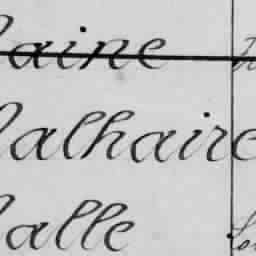 aine
alhaire
alle